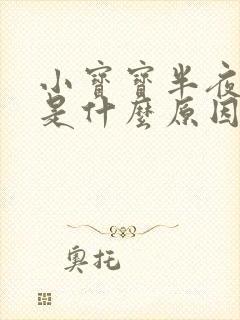 小寶寶半夜
是什麼原因
奧托